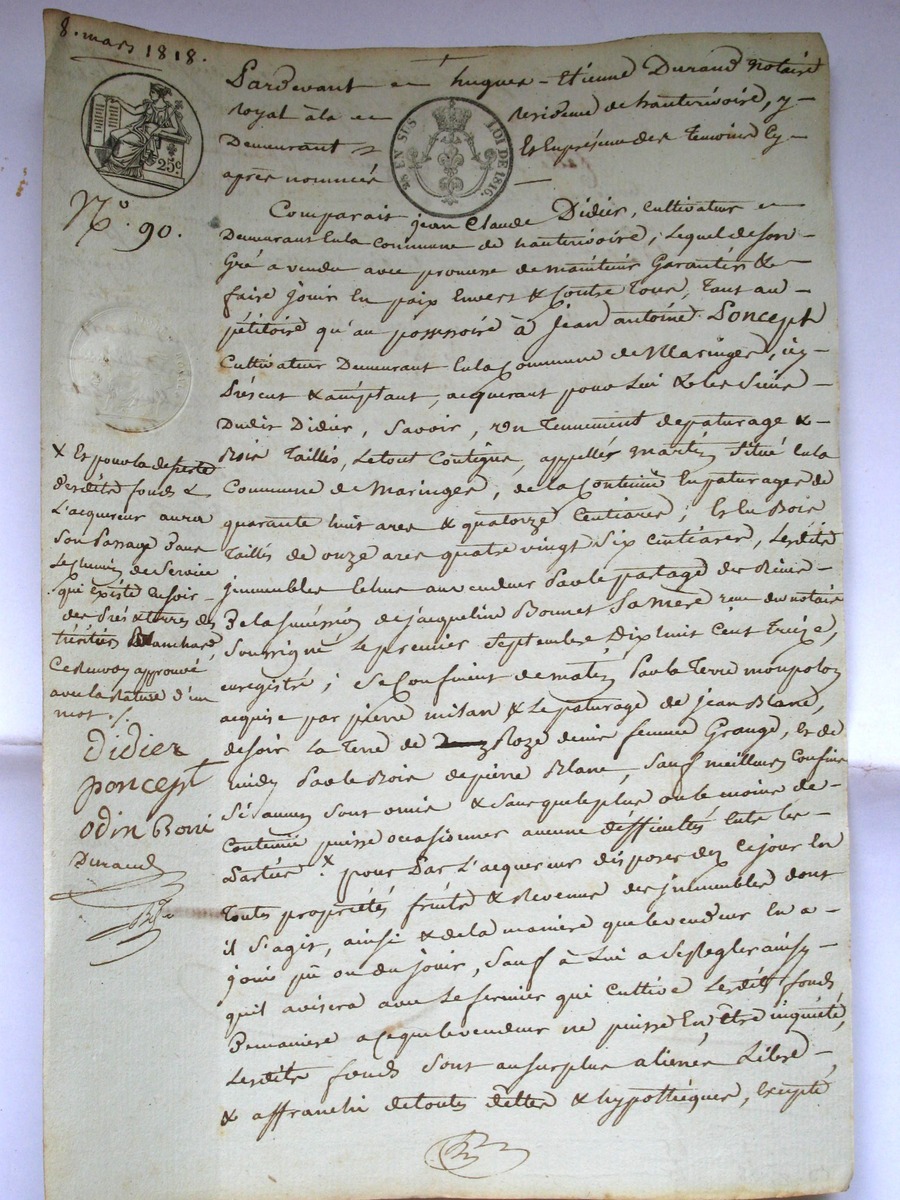 8. mars 1818.
25c.
28 EN SUS
LOI DE 1816.
N.o 90.
Pardevant me hugues - Etienne Durand Notaire
royal à la residence de hauterivoire, y-
Demeurant Et En presence des temoins Cy-
après nommés
Comparait jean Claude Didier, Cultivateur
Demeurant En la Commune de hauterivoire, Lequel de son
Gré a vendu avec promesse de maintenir Garantir &
faire jouir En paix Envers & Contre Tous, Tant au
pétitoire qu'au possessoire à Jean antoine Poncept
Cultivateur Demeurant En la Commune de Maringes, icy
Présent & acceptant, acquerant pour Lui & les Siens
Dudit Didier, Savoir, Un Tennement de paturage &
Bois Taillis, Le tout Contigue, appellés situé En la
Commune de Maringes, de la Contenue En paturages de
quarante huit ares & quatorze Centiares; Et En Bois
Taillés de onze ares quatre vingt Six Centiares, Lesdits
immeubles Echus au vendeur Par le partage des Biens
De la succession de jacqueline Bonnet Sa Mere reçu du notaire
Soussigné Le premier Septembre Dix huit Cent Treize,
enregistré; Se Confinent de matin Par la Terre
acquise par pierre milan & Le paturage de jean Blanc,
de soir La Terre de Roze femme Grange, Et de
midy Par le Bois de pierre Blanc, Sauf meilleurs Confins
Si aucuns Sont omis & Sans que le plus ou le moins de
Contenue puisse occasionner aucune difficultés Entre les
Parties x pour Par L'acquereur disposer dez Ce jour En
Toutes propriétés fruits & Revenus des immeubles dont
il S'agit, ainsi & de la maniere que le vendeur En a
joui pu ou du jouir, Sauf à Lui a Se Regler ainsy
qu'il avisera avec Le fermier qui Cultive Lesdits fonds,
De maniere a Ce que le vendeur ne puisse En Etre inquiété,
Lesdits fonds Sont au surplus aliénés Libre
& affranchi de toutes dettes & hypothèques, Excepté
x Et pour la deserte
desdits fonds
L'acquereur aura
Son Passage Dans
Le chemin de Service
qui Existe au soir
des Prés & terres des
héritiers Blanchard,
Ce Renvoy approuvé
avec la rature d'un
mot ./.
Didier
poncept
odin
Durand